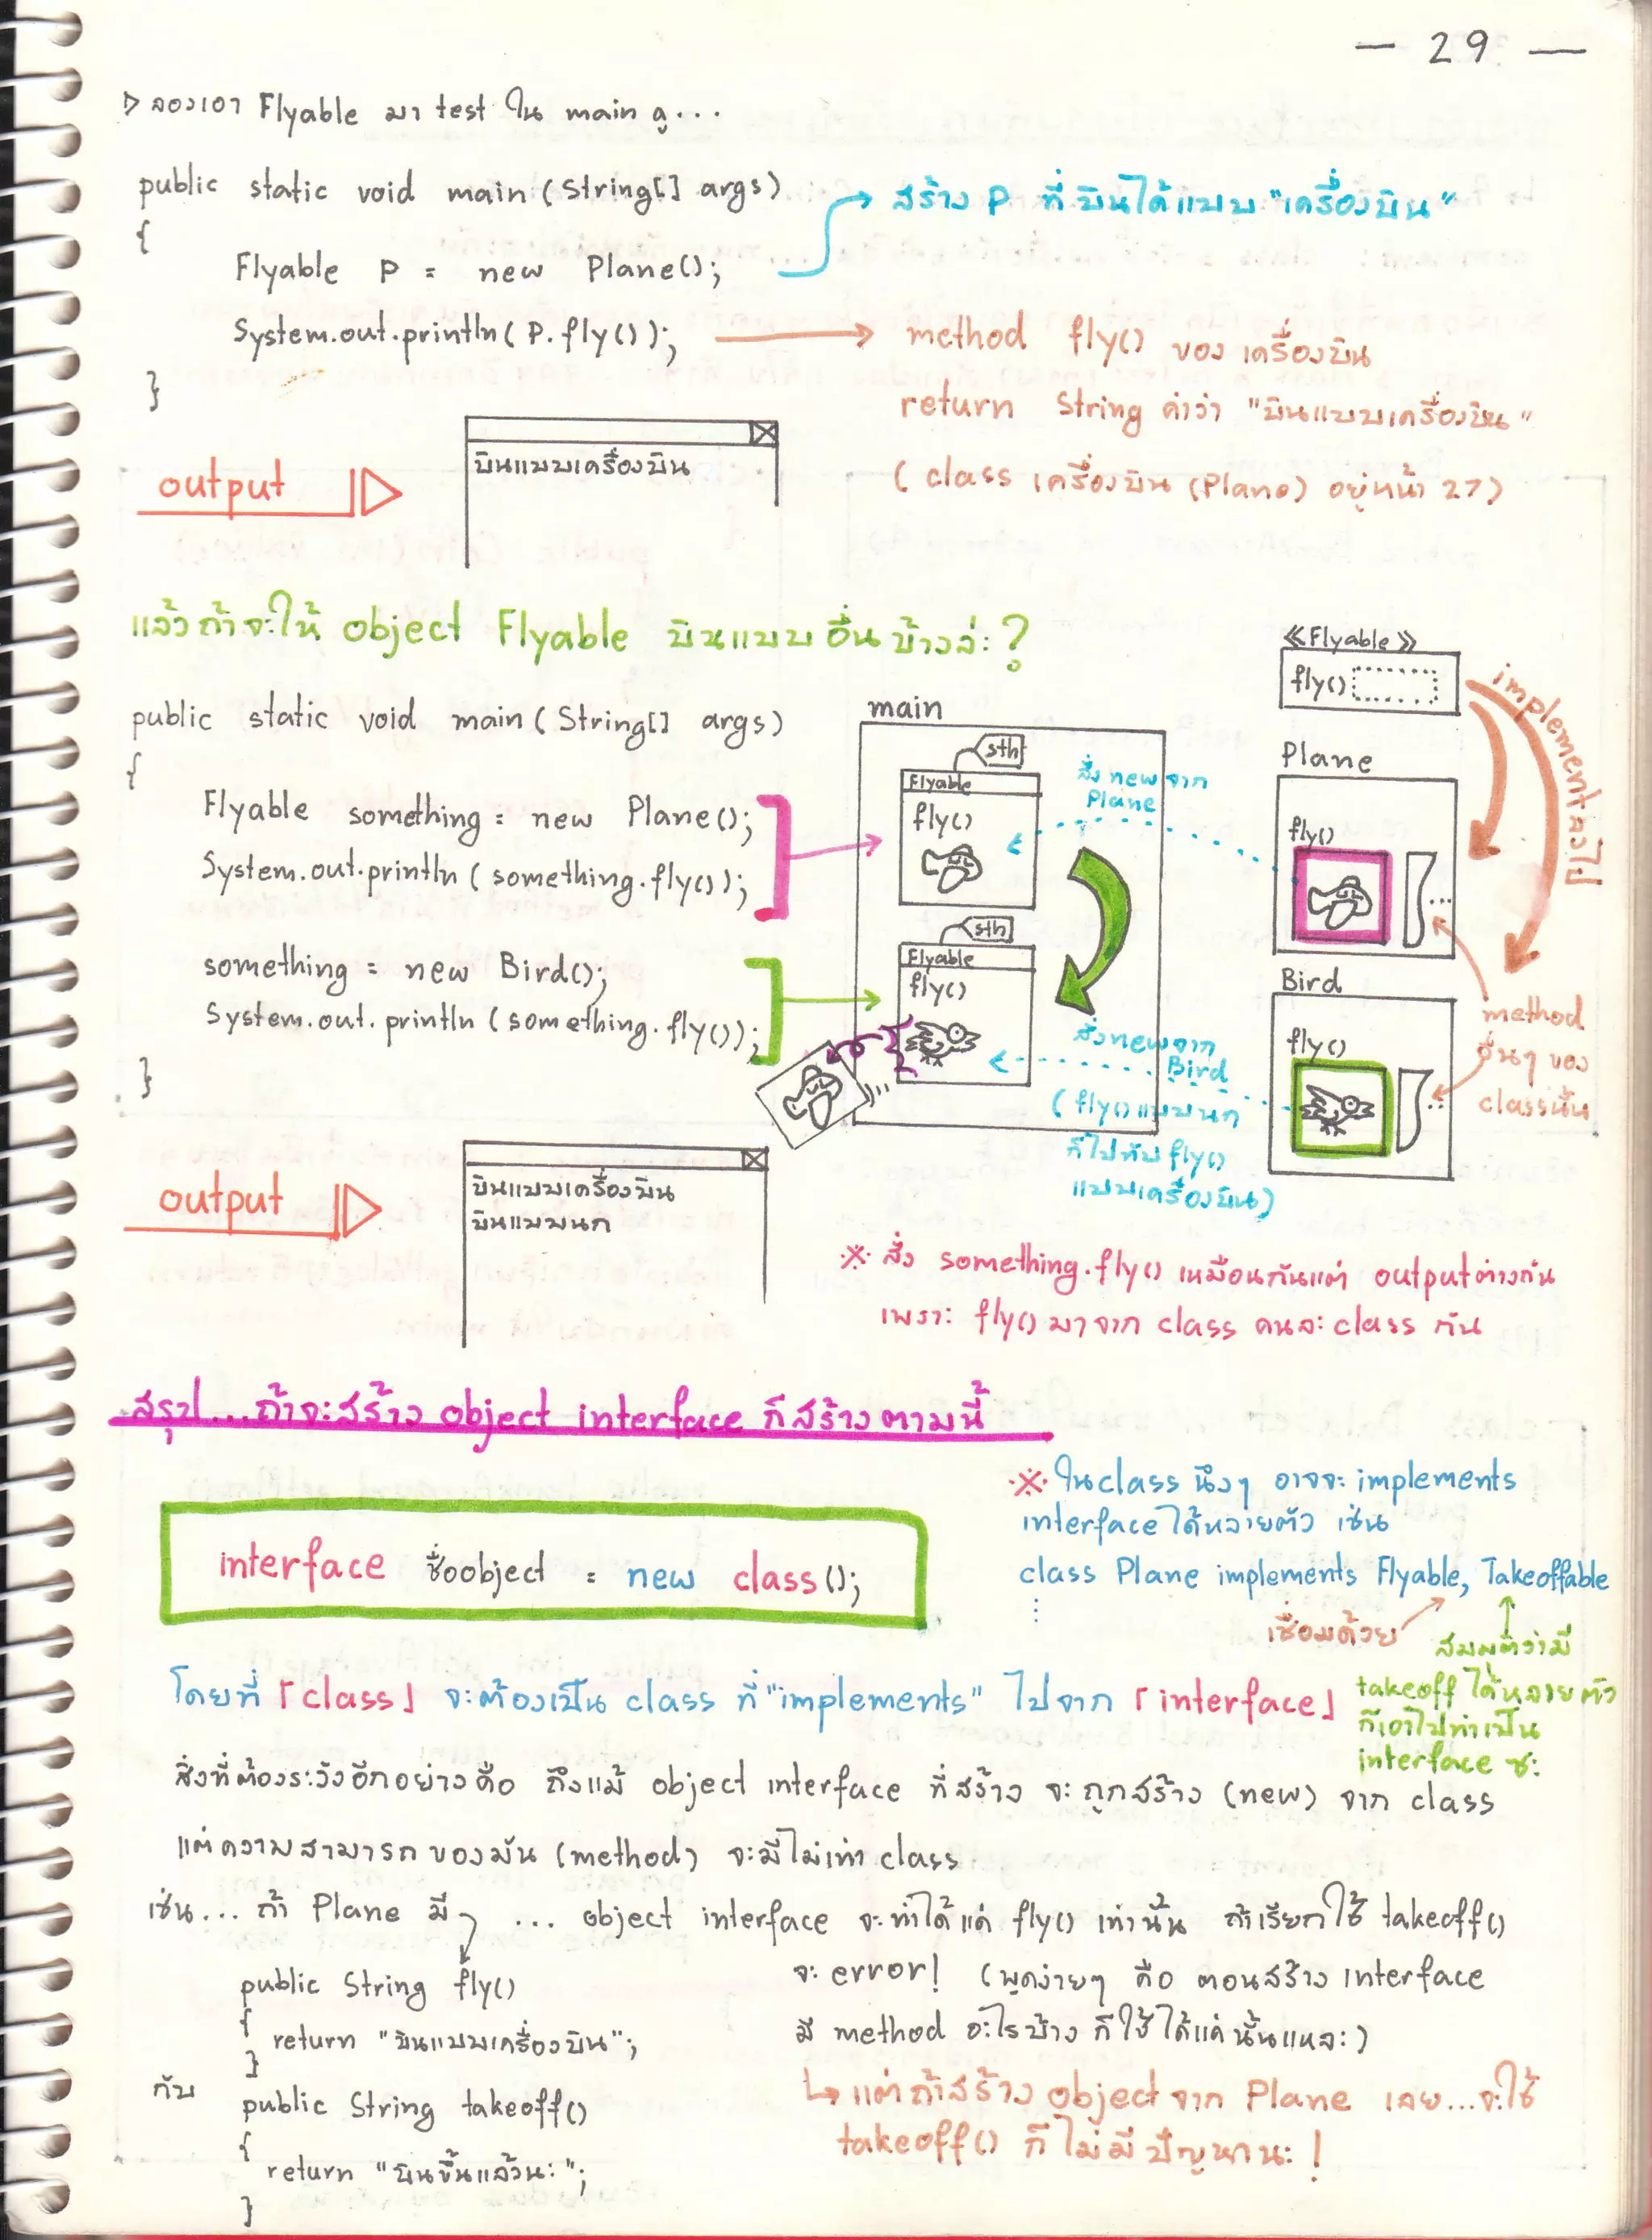 — 29 —
▷ ลองเอา Flyable มา test ใน main ดู...
public static void main (String[] args)
{
Flyable P = new Plane();
System.out.println( P.fly());
}
สร้าง P ที่บินได้แบบ "เครื่องบิน"
method fly() ของ เครื่องบิน
return String คำว่า "บินแบบเครื่องบิน"
( class เครื่องบิน (Plane) อยู่หน้า 27)
output
บินแบบเครื่องบิน
แล้วถ้าจะให้ object Flyable บินแบบอื่นบ้างล่ะ?
public static void main (String[] args)
{
Flyable something = new Plane();
System.out.println (something.fly());
something = new Bird();
System.out.println (something.fly());
}
main
sth
Flyable
fly()
สั่ง new จาก
Plane
sth
Flyable
fly()
สั่ง new จาก
Bird
( fly() แบบนก
ก็ไปทับ fly()
แบบเครื่องบิน)
≪Flyable≫
fly()
implement ลงไป
Plane
fly()
...
Bird
fly()
...
method
อื่นๆ ของ
classนั้น
output
บินแบบเครื่องบิน
บินแบบนก
※ สั่ง something.fly() เหมือนกันแต่ output ต่างกัน
เพราะ fly() มาจาก class คนละ class กัน
สรุป...ถ้าจะสร้าง object interface ก็สร้างตามนี้
interface ชื่อobject = new class();
※ ในclass นึงๆ อาจจะ implements
interface ได้หลายตัว เช่น
class Plane implements Flyable, Takeoffable
⋮
เชื่อมด้วย
สมมติว่ามี
takeoff ได้หลายตัว
ก็เอาไปทำเป็น
interface ซะ
โดยที่ 「class」 จะต้องเป็น class ที่ "implements" ไปจาก 「interface」
สิ่งที่ต้องระวังอีกอย่างคือ ถึงแม้ object interface ที่สร้าง จะถูกสร้าง (new) จาก class
แต่ความสามารถของมัน (method) จะมีไม่เท่า class
เช่น... ถ้า Plane มี ... object interface จะทำได้แค่ fly() เท่านั้น ถ้าเรียกใช้ takeoff()
จะ error! (พูดง่ายๆ คือ ตอนสร้าง interface
มี method อะไรบ้าง ก็ใช้ได้แค่นั้นแหละ)
public String fly()
{
return "บินแบบเครื่องบิน";
}
กับ
public String takeoff()
{
return "บินขึ้นแล้วนะ";
}
↳ แต่ถ้าสร้าง object จาก Plane เลย...จะใช้
takeoff() ก็ไม่มีปัญหานะ!